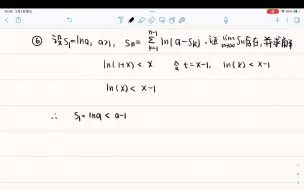 ⑥ 设 S₁=lna, a>1, Sn= ∑_{k=1}^{n-1} ln(a-Sk), 证 lim_{n→∞} Sn存在, 并求解
ln(1+x) < x 令 t=x-1, ln(x) < x-1
ln(x) < x-1
∴ S₁=lna < a-1